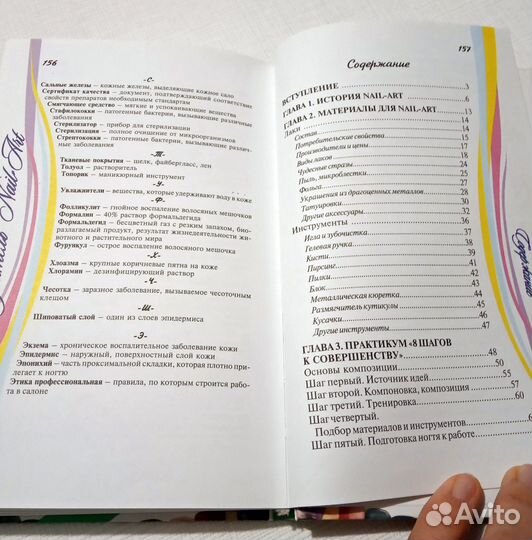 156
-С-
Сальные железы – кожные железы, выделяющие кожное сало
Сертификат качества – документ, подтверждающий соответствие
свойств препаратов необходимым стандартам
Смягчающее средство – мягкие и успокаивающие вещества
Стафилококки – патогенные бактерии, вызывающие различные
заболевания
Стерилизатор – прибор для стерилизации
Стерилизация – полное очищение от микроорганизмов
Стрептококки – патогенные бактерии, вызывающие различ-
ные заболевания
-Т-
Тканевые покрытия – шелк, файбергласс, лен
Толуол – растворитель
Топорик – маникюрный инструмент
-У-
Увлажнители – вещества, которые удерживают воду в коже
-Ф-
Фолликулит – гнойное воспаление волосяных мешочков
Формалин – 40% раствор формальдегида
Формальдегид – бесцветный газ с резким запахом, био-
разлагаемый продукт, результат жизнедеятельности жи-
вотного и растительного мира
Фурункул – острое воспаление волосяного мешочка
-Х-
Хлоазма – крупные коричневые пятна на коже
Хлорамин – дезинфицирующий раствор
-Ч-
Чесотка – заразное заболевание, вызываемое чесоточным
клещом
-Ш-
Шиповатый слой – один из слоев эпидермиса
-Э-
Экзема – хроническое воспалительное заболевание кожи
Эпидермис – наружный, поверхностный слой кожи
Эпонихий – часть проксимальной складки, которая плотно при-
легает к ногтю
Этика профессиональная – правила, по которым строится рабо-
та в салоне
Nail-Art
157
Содержание
ВСТУПЛЕНИЕ 3
ГЛАВА 1. ИСТОРИЯ NAIL-ART 6
ГЛАВА 2. МАТЕРИАЛЫ ДЛЯ NAIL-ART 13
Лаки 14
Состав 14
Потребительские свойства 15
Производители и цены 17
Виды лаков 18
Чудесные стразы 24
Пыль, микроблестки 25
Фольга 26
Украшения из драгоценных металлов 28
Татуировки 31
Другие аксессуары 32
Инструменты 36
Игла и зубочистка 36
Гелевая ручка 38
Кисти 39
Пирсинг 40
Пилки 41
Блок 42
Металлическая кюретка 44
Размягчитель кутикулы 45
Кусачки 46
Другие инструменты 47
ГЛАВА 3. ПРАКТИКУМ «8 ШАГОВ
К СОВЕРШЕНСТВУ» 48
Основы композиции 50
Шаг первый. Источник идей 55
Шаг второй. Компоновка, композиция 57
Шаг третий. Тренировка 60
Шаг четвертый.
Подбор материалов и инструментов
Шаг пятый. Подготовка ногтя к работе
Avito